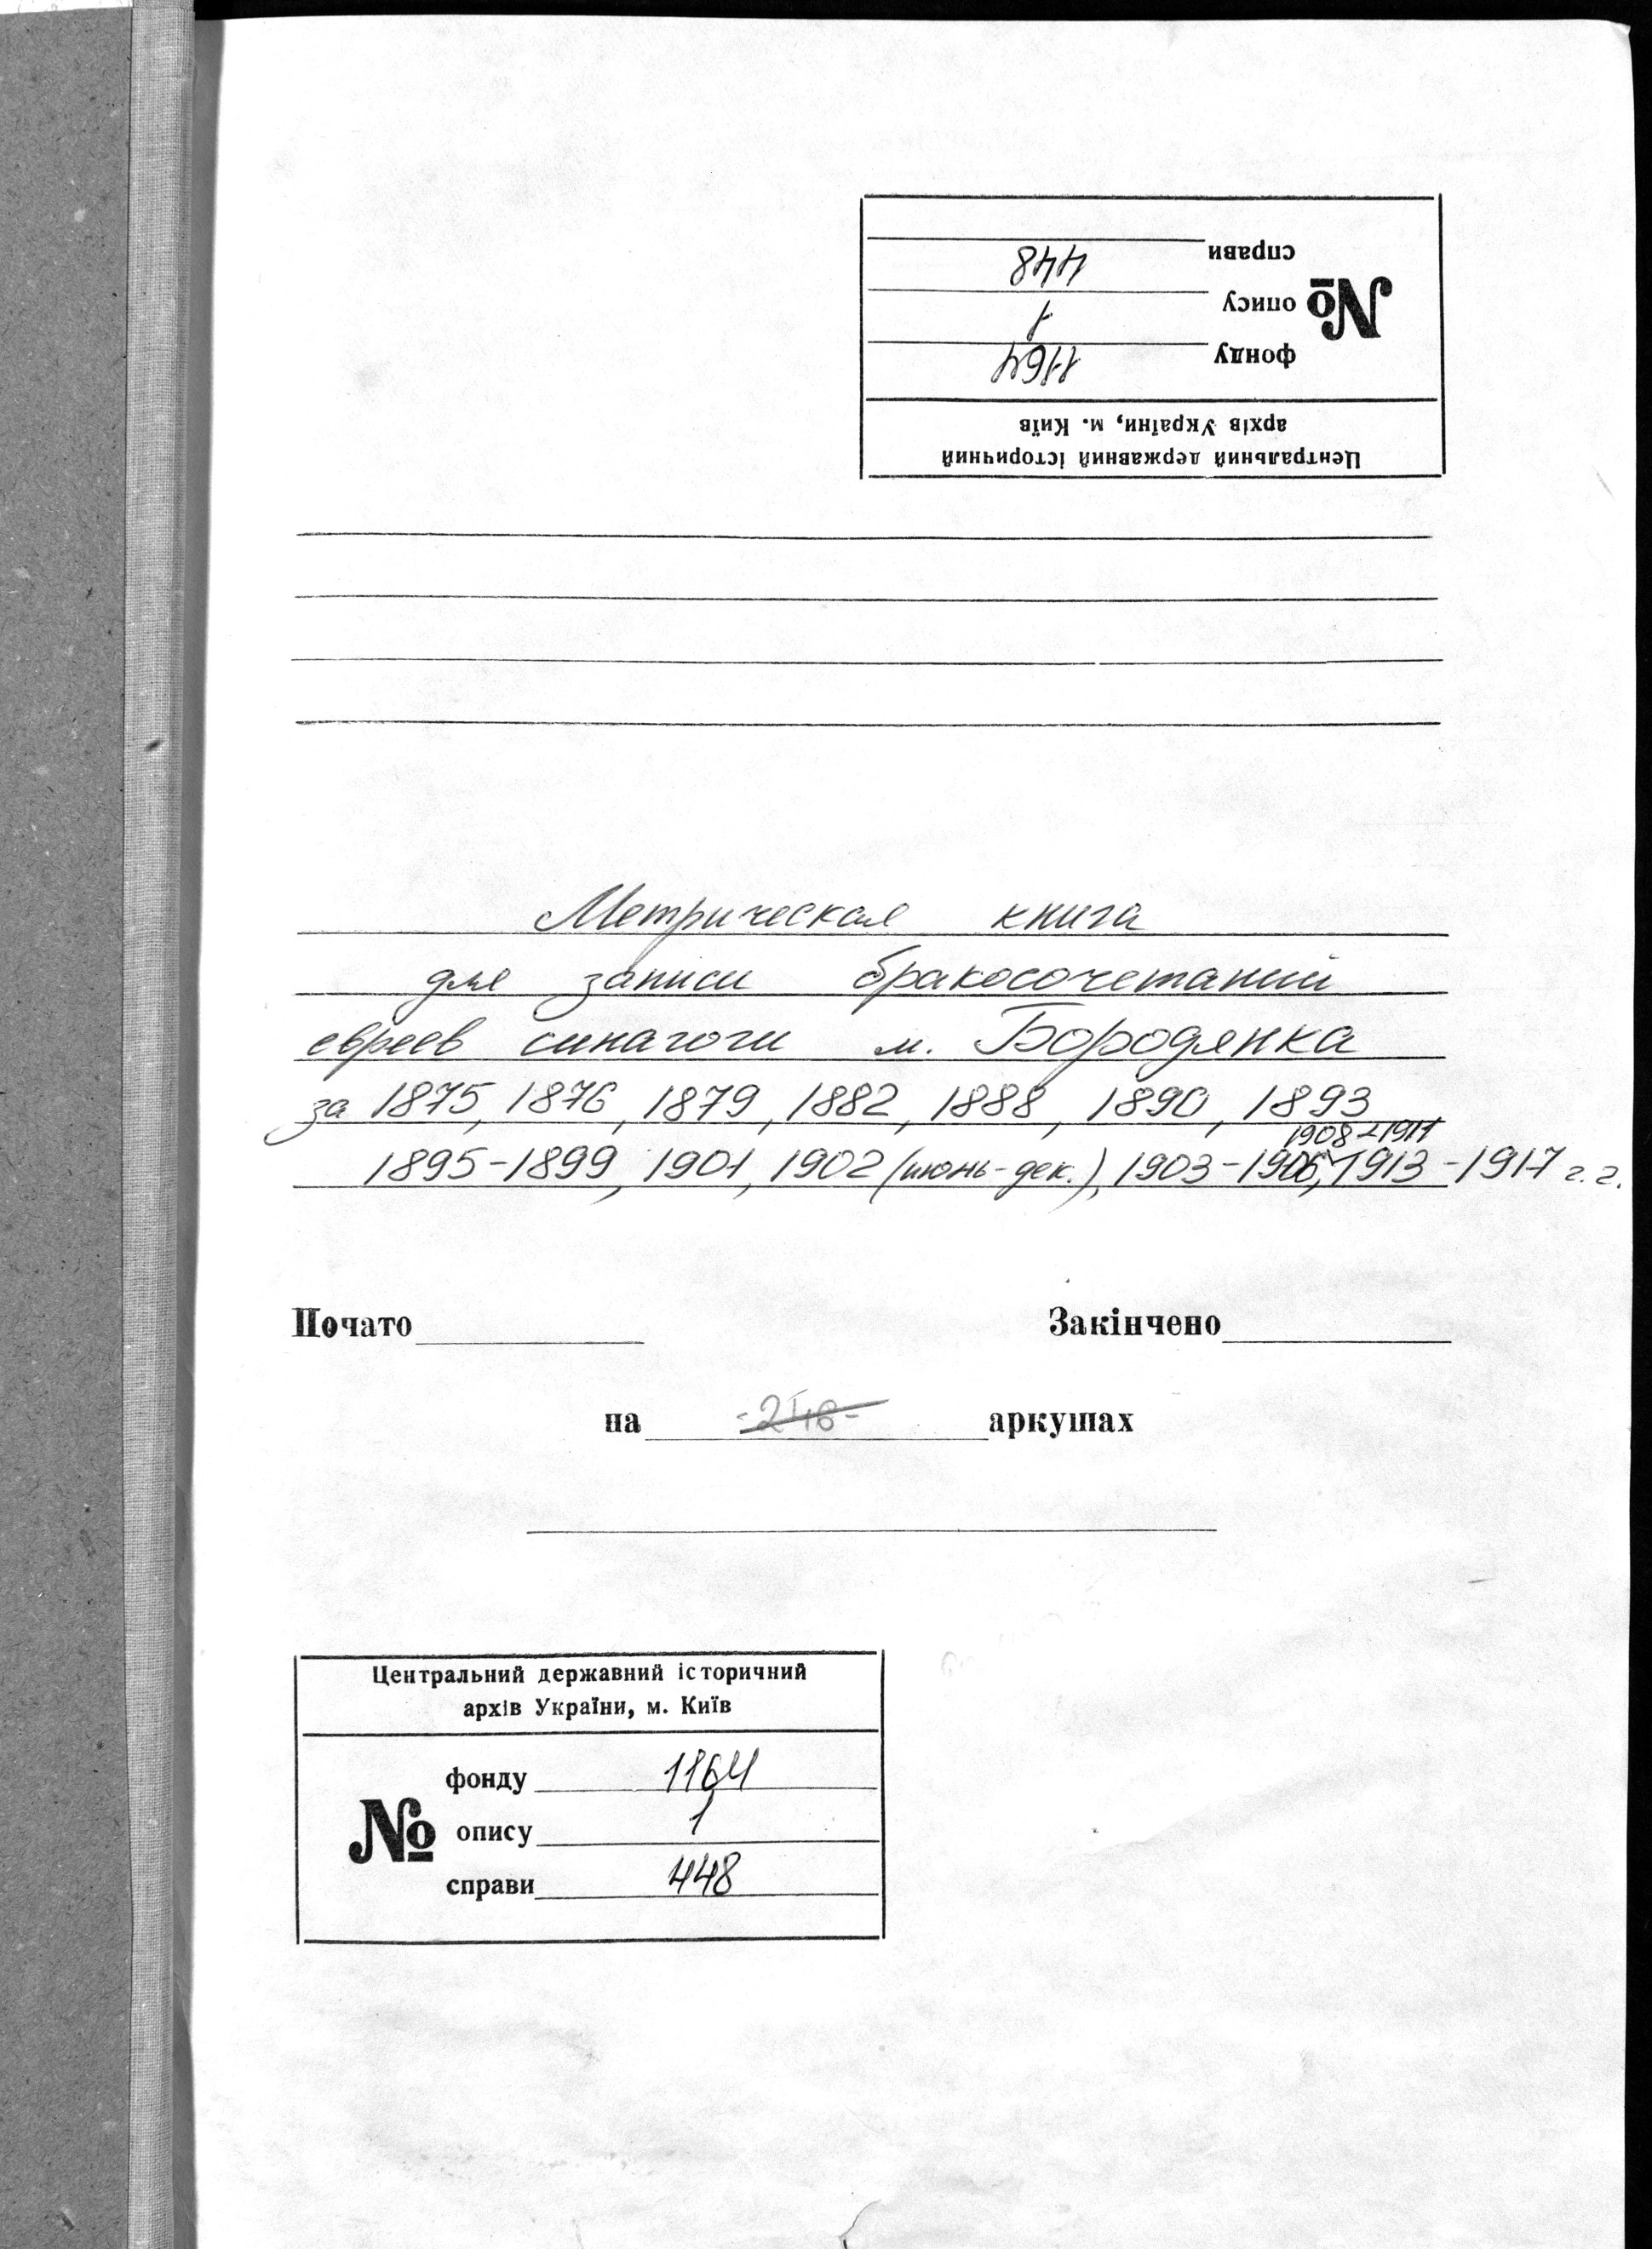 Центральний державний історичний
архів України, м. Київ
№
фонду 1164
опису 1
справи 448
Метрическая книга
для записи бракосочетаний
евреев синагоги м. Бородянка
за 1875, 1876, 1879, 1882, 1888, 1890, 1893
1908-1911
1895-1899, 1901, 1902 (июнь-дек.), 1903-1906, 1913-1917 г.г.
Почато
Закінчено
на аркушах
Центральний державний історичний
архів України, м. Київ
№
фонду 1164
опису 1
справи 448